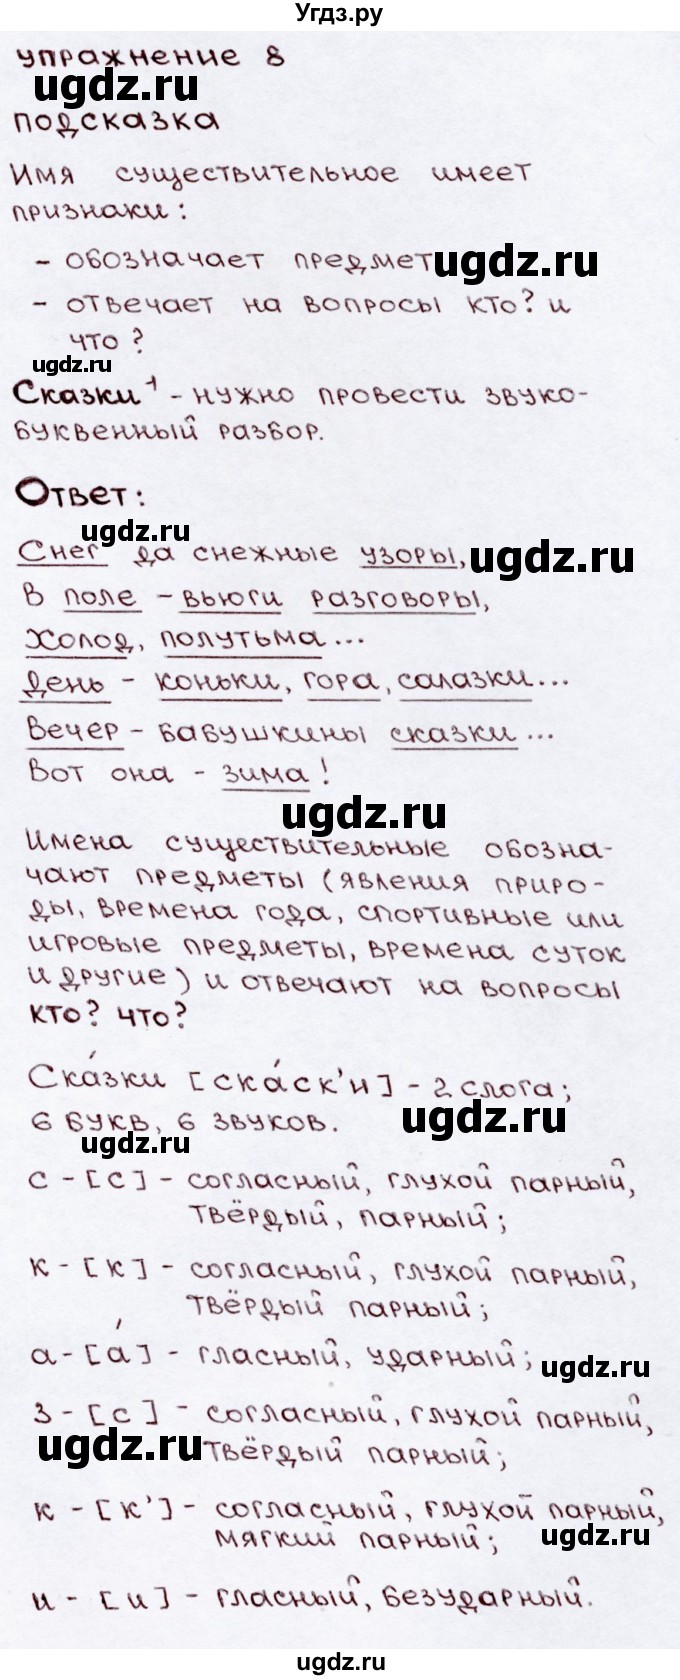 Угдз.ру
упражнение 8
ugdz.ru
подсказка
Имя существительное имеет
признаки:
- обозначает предмет ugdz.ru
- отвечает на вопросы кто? и
что?
ugdz.ru
Сказки¹ - нужно провести звуко-
буквенный разбор.
Ответ:
ugdz.ru
Снег да снежные узоры, ugdz.ru
В поле - вьюги разговоры,
Холод, полутьма...
День - коньки, гора, салазки...
Вечер - бабушкины сказки...
Вот она - зима!
ugdz.ru
Имена существительные обозна-
чают предметы (явления приро-
ды, времена года, спортивные или
игровые предметы, времена суток
и другие) и отвечают на вопросы
кто? что?
Ска́зки [ска́ск'и] - 2 слога;
6 букв, 6 звуков. ugdz.ru
ugdz.ru
с - [с] - согласный, глухой парный,
твёрдый, парный;
к - [к] - согласный, глухой парный,
твёрдый парный;
а - [а́] - гласный, ударный; ugdz.ru
з - [с] - согласный, глухой парный,
ugdz.ru твёрдый парный;
к - [к'] - согласный, глухой парный,
мягкий парный; ugdz.ru
и - [и] - гласный, безударный.
ugdz.ru